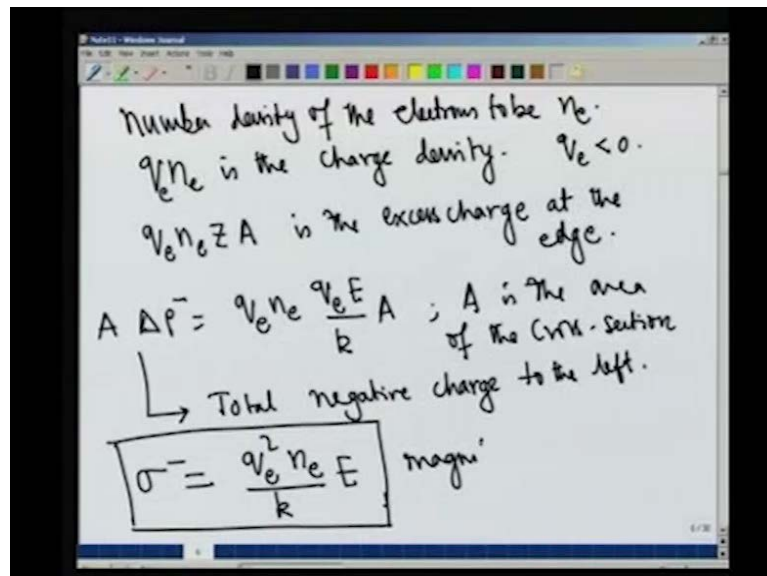 Note11 - Windows Journal
File Edit View Insert Actions Tools Help
Number density of the electrons to be nₑ.
qₑnₑ is the charge density. qₑ < 0.
qₑnₑ z A is the excess charge at the
edge.
A Δρ⁻ = qₑnₑ qₑE/k A ; A is the area
of the Cross-section
↳ Total negative charge to the left.
σ⁻ = qₑ²nₑ/k E magni